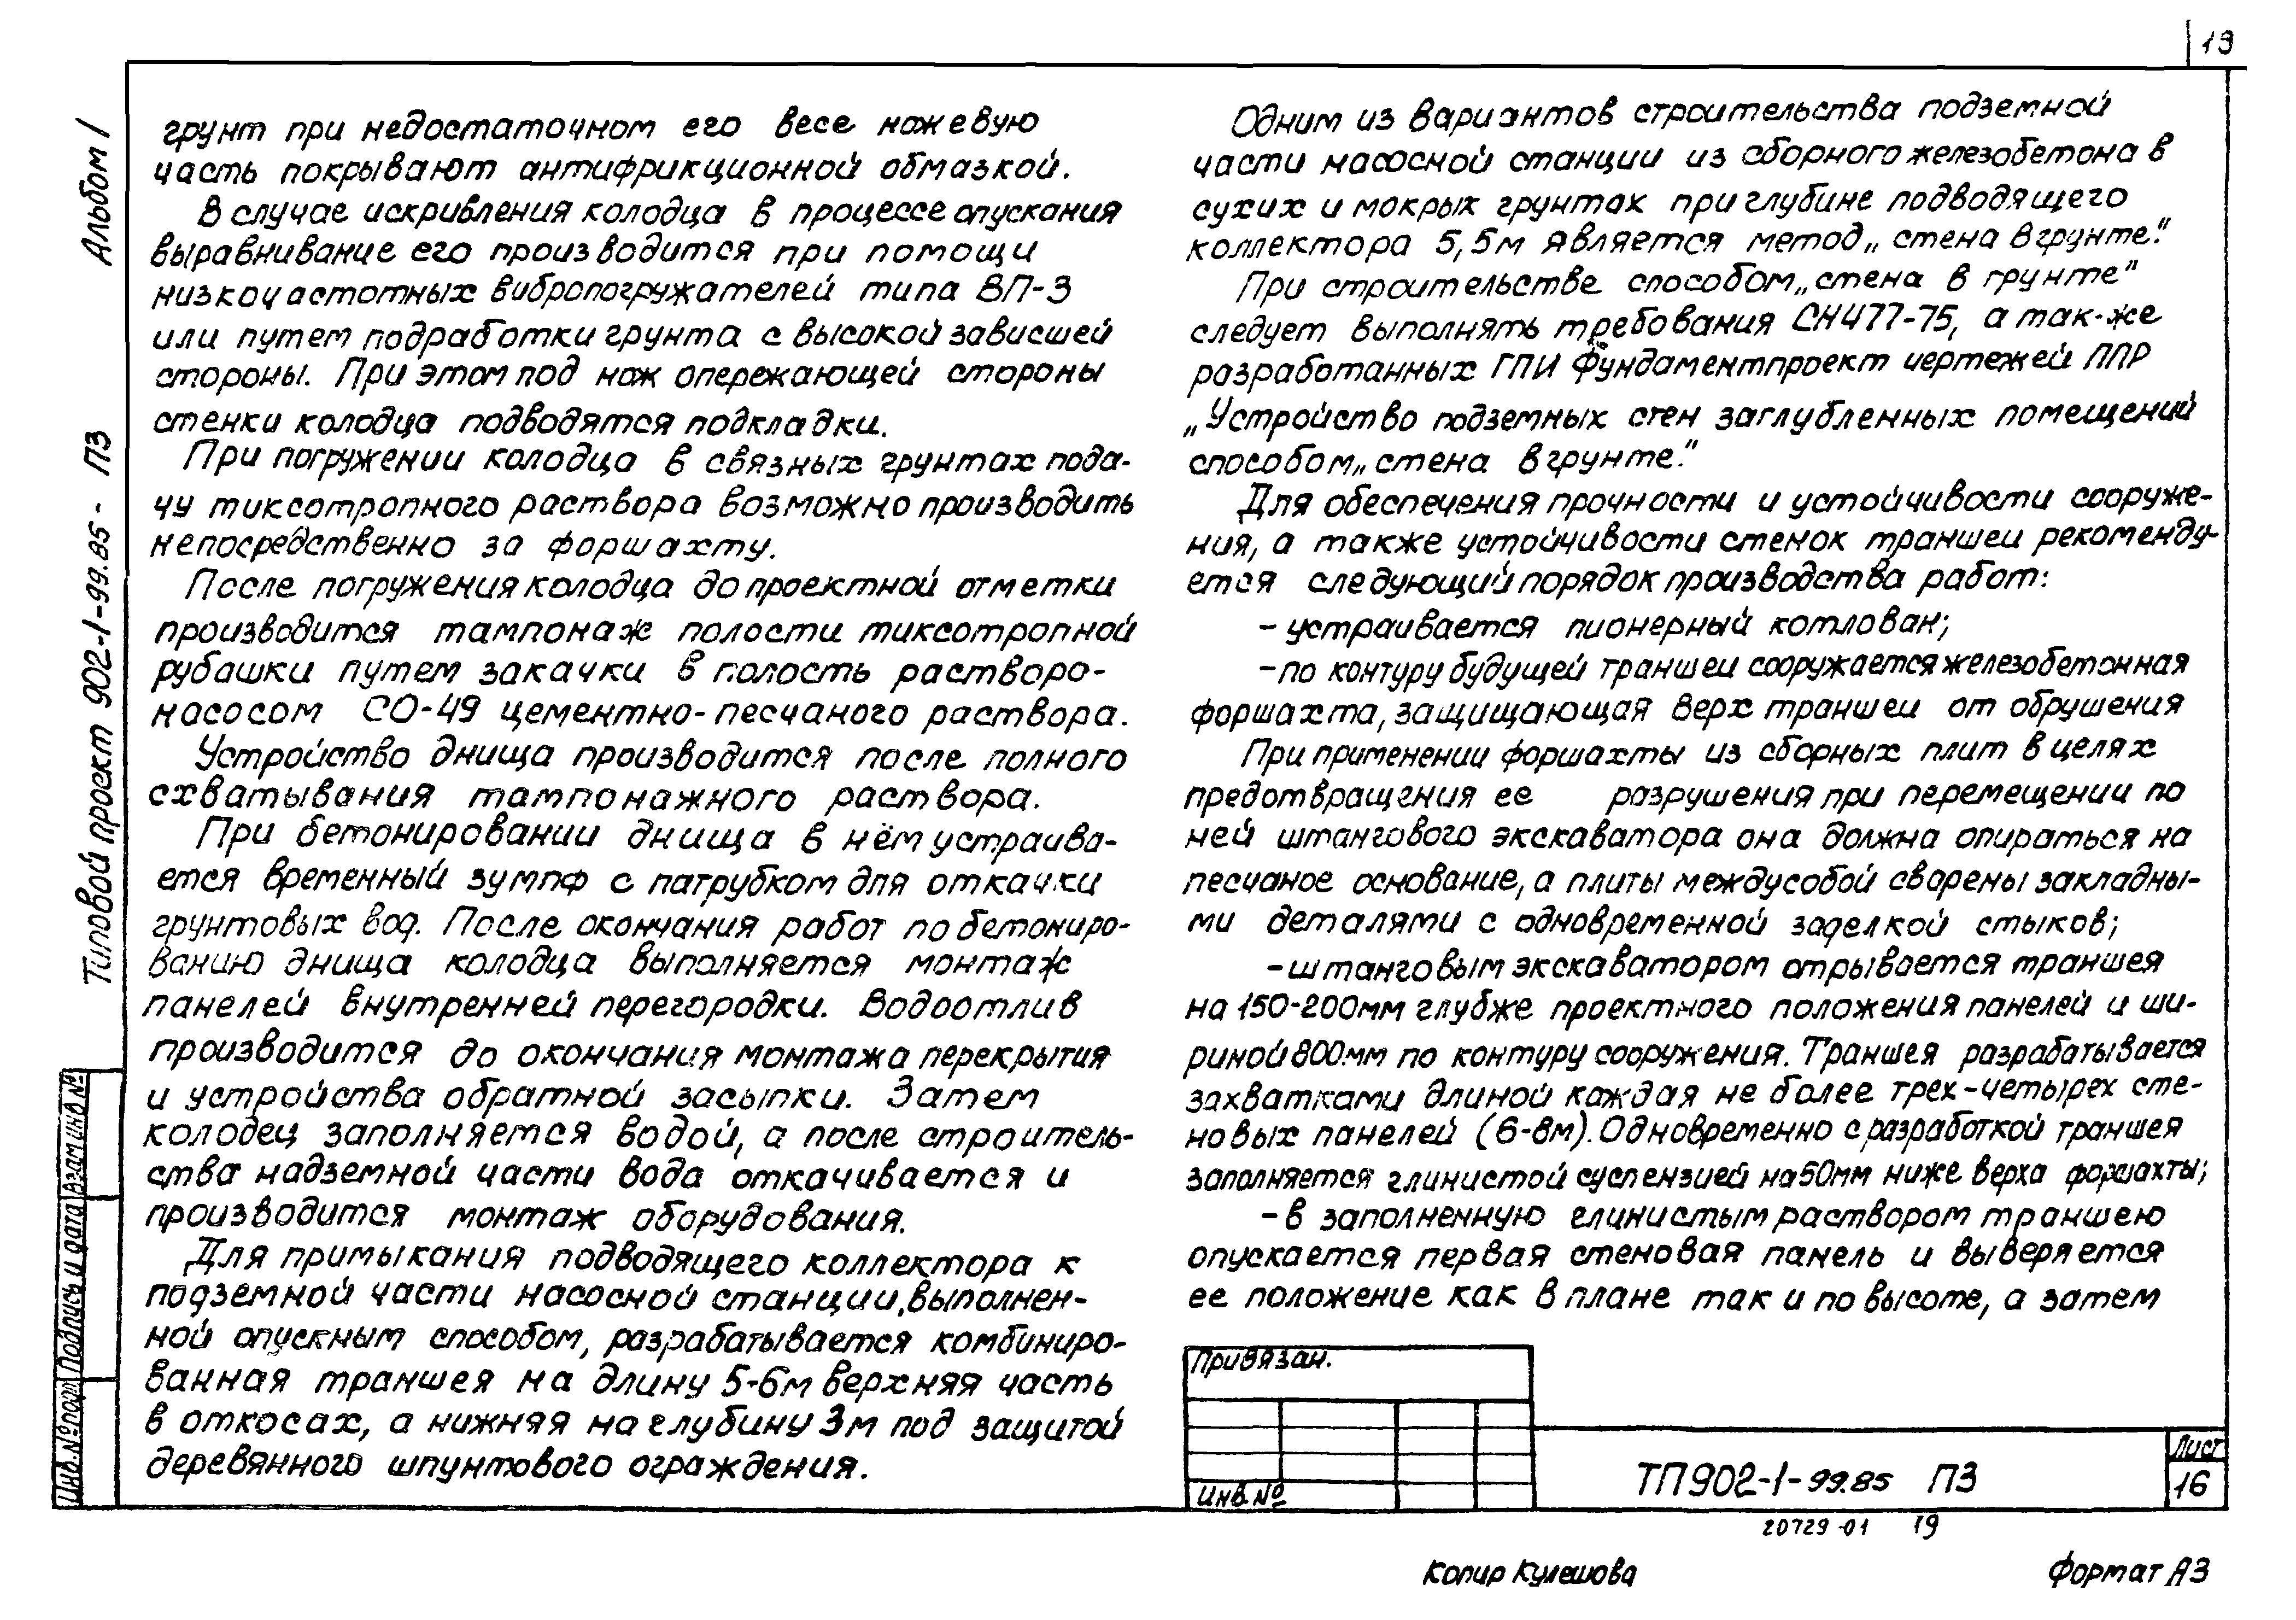 13
Альбом 1
Типовой проект 902-1-99.85 - ПЗ
грунт при недостаточном его весе ножевую
часть покрывают антифрикционной обмазкой.
В случае искривления колодца в процессе опускания
выравнивание его производится при помощи
низкочастотных вибропогружателей типа ВП-3
или путем подработки грунта с высокой зависшей
стороны. При этом под нож опережающей стороны
стенки колодца подводятся подкладки.
При погружении колодца в связных грунтах пода-
чу тиксотропного раствора возможно производить
непосредственно за форшахту.
После погружения колодца до проектной отметки
производится тампонаж полости тиксотропной
рубашки путем закачки в полость растворо-
насосом СО-49 цементно-песчаного раствора.
Устройство днища производится после полного
схватывания тампонажного раствора.
При бетонировании днища в нём устраива-
ется временный зумпф с патрубком для откачки
грунтовых вод. После окончания работ по бетониро-
ванию днища колодца выполняется монтаж
панелей внутренней перегородки. Водоотлив
производится до окончания монтажа перекрытия
и устройства обратной засыпки. Затем
колодец заполняется водой, а после строитель-
ства надземной части вода откачивается и
производится монтаж оборудования.
Для примыкания подводящего коллектора к
подземной части насосной станции, выполнен-
ной опускным способом, разрабатывается комбиниро-
ванная траншея на длину 5-6м верхняя часть
в откосах, а нижняя на глубину 3м под защитой
деревянного шпунтового ограждения.
Одним из вариантов строительства подземной
части насосной станции из сборного железобетона в
сухих и мокрых грунтах при глубине подводящего
коллектора 5,5м является метод „стена в грунте."
При строительстве способом „стена в грунте"
следует выполнять требования СН477-75, а так-же
разработанных ГПИ Фундаментпроект чертежей ППР
„Устройство подземных стен заглубленных помещений
способом „стена в грунте."
Для обеспечения прочности и устойчивости сооруже-
ния, а также устойчивости стенок траншеи рекоменду-
ется следующий порядок производства работ:
- устраивается пионерный котлован;
- по контуру будущей траншеи сооружается железобетонная
форшахта, защищающая верх траншеи от обрушения
При применении форшахты из сборных плит в целях
предотвращения ее разрушения при перемещении по
ней штангового экскаватора она должна опираться на
песчаное основание, а плиты междусобой сварены закладны-
ми деталями с одновременной заделкой стыков;
- штанговым экскаватором отрывается траншея
на 150-200мм глубже проектного положения панелей и ши-
риной 800мм по контуру сооружения. Траншея разрабатывается
захватками длиной каждая не более трех-четырех сте-
новых панелей (6-8м). Одновременно с разработкой траншея
заполняется глинистой суспензией на 50мм ниже верха форшахты;
- в заполненную глинистым раствором траншею
опускается первая стеновая панель и выверяется
ее положение как в плане так и по высоте, а затем
Привязан.
Инв. №
ТП902-1-99.85 ПЗ
Лист
16
Инв. № подл Подпись и дата Взам инв №
20729-01 19
Копир Кулешова
Формат А3